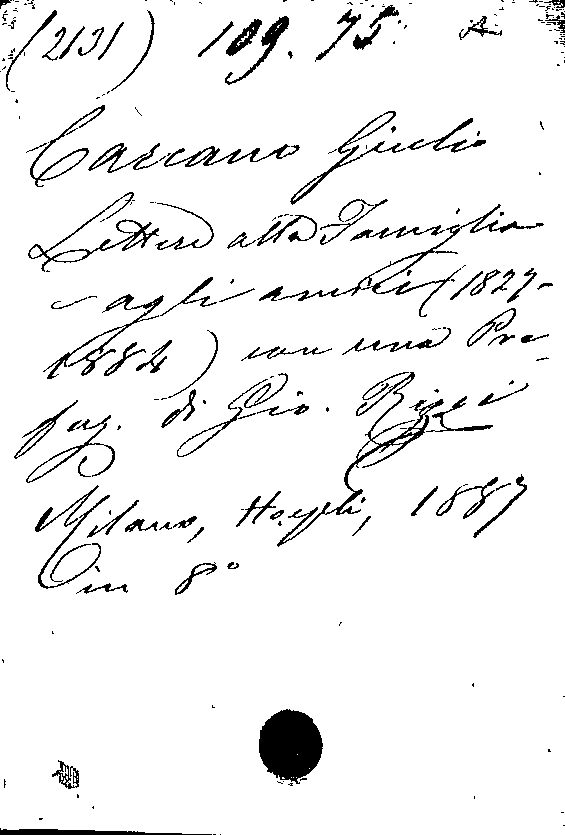 (2131) 109. 75. A
Carcano Giulio
Lettere alla Famiglia
e agli amici (1827-
1884) con una Pre-
faz. di Gio. Rizzi
Milano, Hoepli, 1887
in 8°